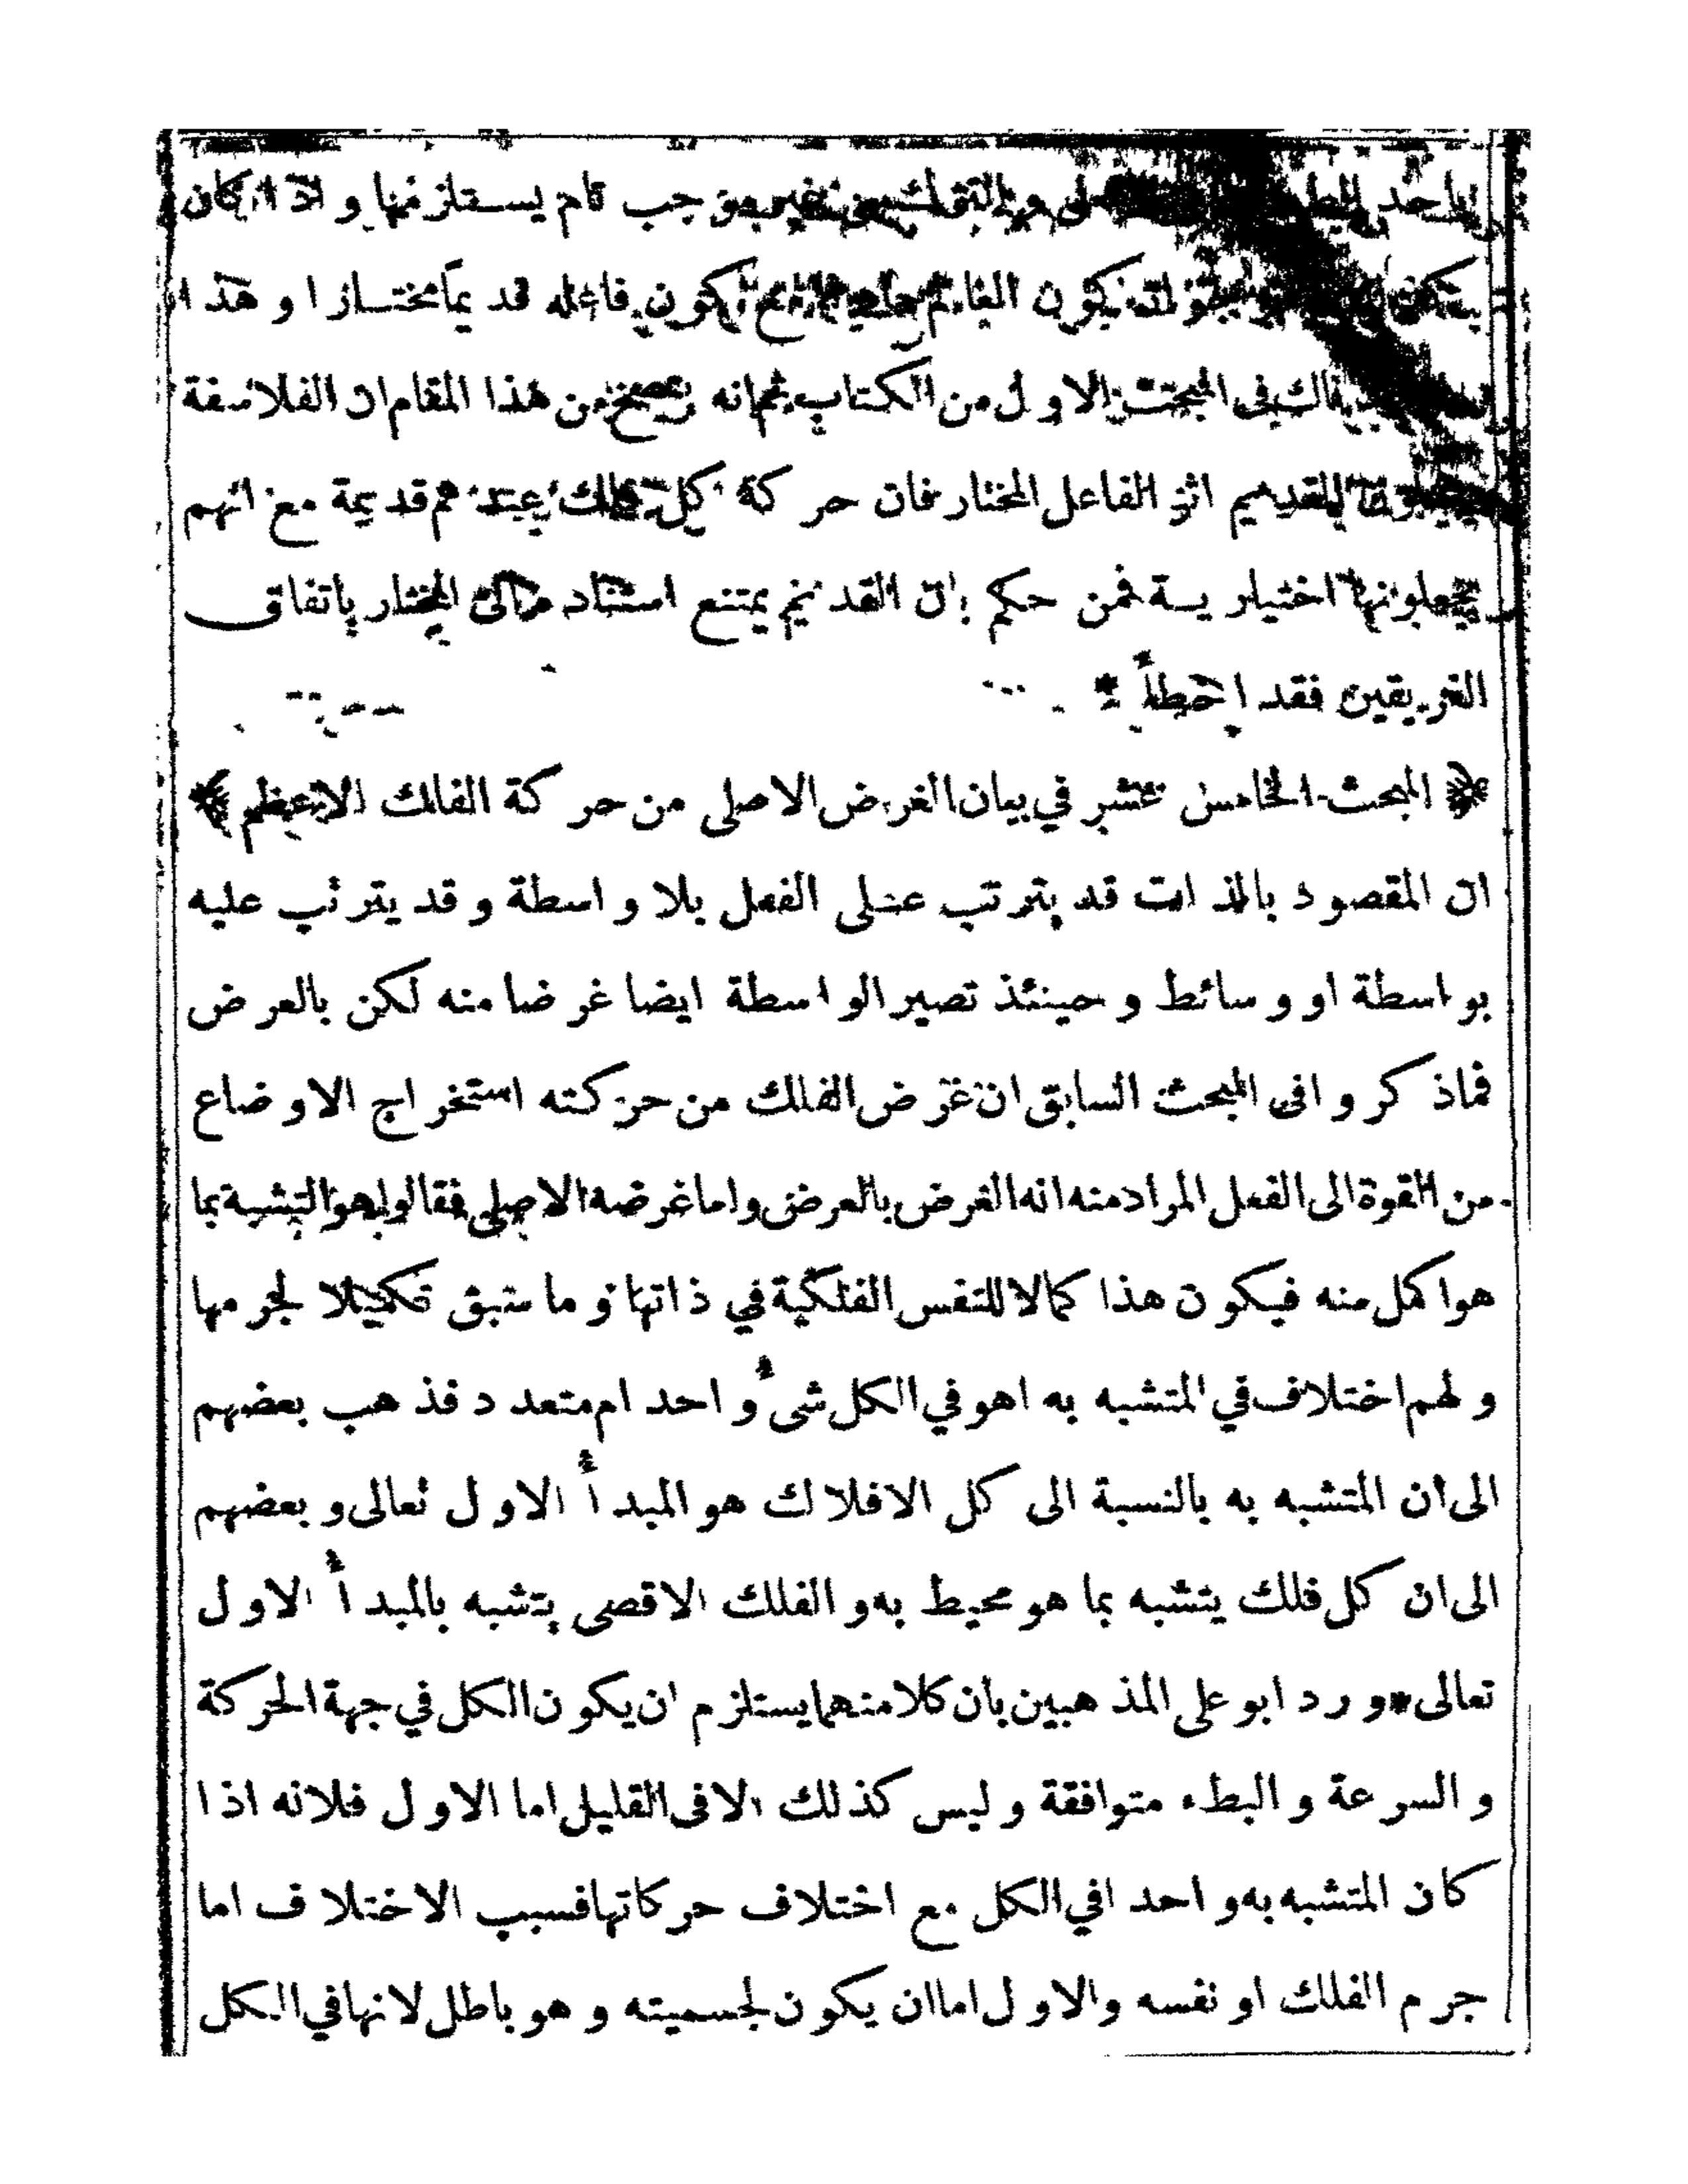 جب تام يستلزمها و اذا كان
يكون فاعله قديما مختارا و هذا
فى المبحث الاول من الكتاب ثم انه من هذا المقام ان الفلاسفة
القديم اثر الفاعل المختار فان حركة كل فلك عندهم قديمة مع انهم
يجعلونها اختيارية فمن حكم بان القديم يمتنع استناده الى المختار باتفاق
الفريقين فقد اخطأ *
﴿ المبحث الخامس عشر في بيان الغرض الاصلى من حركة الفلك الاعظم ﴾
ان المقصود بالذات قد يترتب على الفعل بلا واسطة و قد يترتب عليه
بواسطة او وسائط و حينئذ تصير الواسطة ايضا غرضا منه لكن بالعرض
فماذكروا فى المبحث السابق ان غرض الفلك من حركته استخراج الاوضاع
من القوة الى الفعل المراد منه انه الغرض بالعرض واما غرضه الاصلى فقالوا هو التشبه بما
هو اكمل منه فيكون هذا كمالا للنفس الفلكية في ذاتها و ما سبق تكميلا لجرمها
و لهم اختلاف في المتشبه به اهو في الكل شىء واحد ام متعدد فذهب بعضهم
الى ان المتشبه به بالنسبة الى كل الافلاك هو المبدأ الاول تعالى و بعضهم
الى ان كل فلك يتشبه بما هو محيط به و الفلك الاقصى يتشبه بالمبدأ الاول
تعالى * و رد ابو على المذهبين بان كلا منهما يستلزم ان يكون الكل في جهة الحركة
و السرعة و البطء متوافقة و ليس كذلك الا فى القليل اما الاول فلانه اذا
كان المتشبه به واحدا في الكل مع اختلاف حركاتها فسبب الاختلاف اما
جرم الفلك او نفسه والاول اما ان يكون لجسميته و هو باطل لانها في الكل